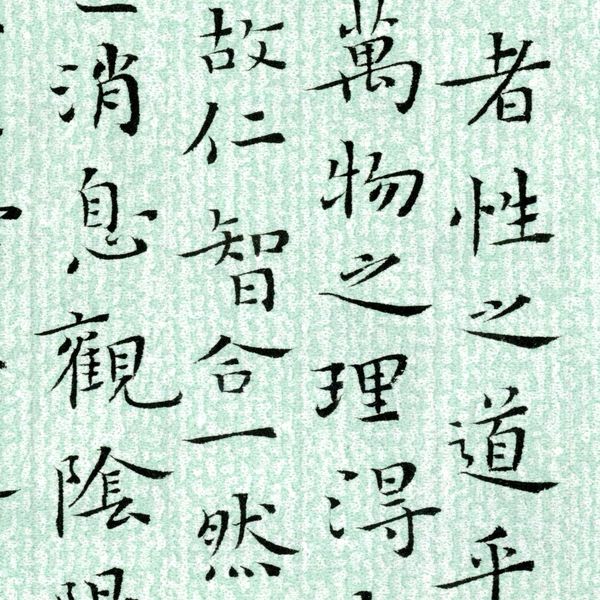 者性之道乎
萬物之理得
故仁智合一然
消息觀陰陽